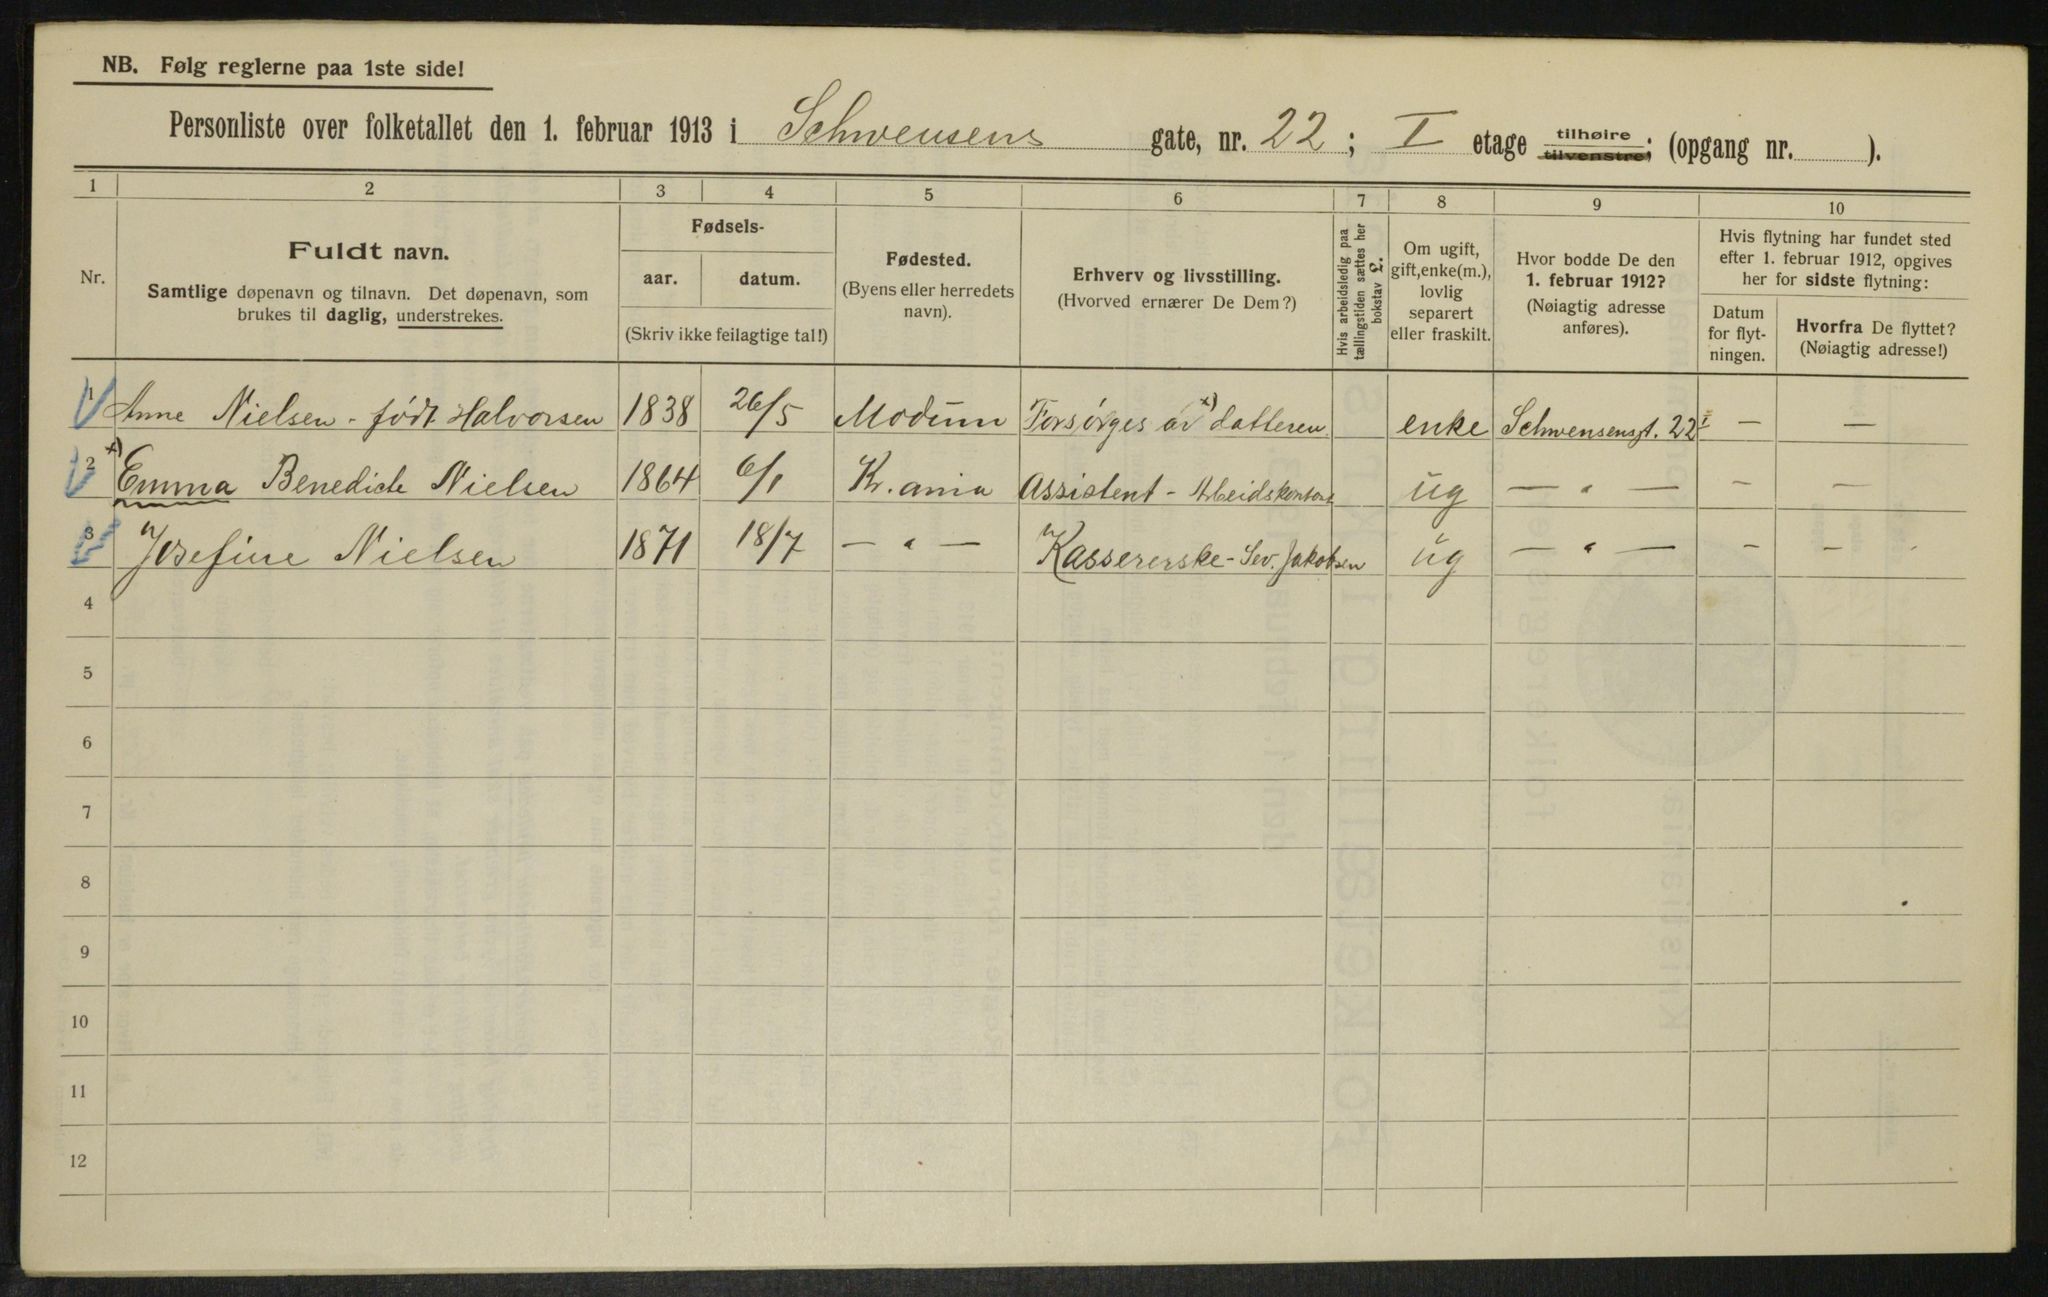 NB. Følg reglerne paa 1ste side!
Personliste over folketallet den 1. februar 1913 i Schwensens gate, nr. 22; I etage tilhøire tilvenstre; (opgang nr. ).
1 2 3 4 5 6 7 8 9 10
Nr.
Fuldt navn.
Samtlige døpenavn og tilnavn. Det døpenavn, som
brukes til daglig, understrekes.
Fødsels-
aar. datum.
(Skriv ikke feilagtige tal!)
Fødested.
(Byens eller herredets
navn).
Erhverv og livsstilling.
(Hvorved ernærer De Dem?)
Hvis arbeidsledig paa
tællingstiden sættes her
bokstav L.
Om ugift,
gift, enke(m.),
lovlig
separert
eller fraskilt.
Hvor bodde De den
1. februar 1912?
(Nøiagtig adresse
anføres).
Hvis flytning har fundet sted
efter 1. februar 1912, opgives
her for sidste flytning:
Datum
for flyt-
ningen.
Hvorfra De flyttet?
(Nøiagtig adresse!)
1 Anne Nielsen - født Halvorsen 1838 26/5 Modum Forsørges av x) datteren enke Schwensensgt. 22 I — —
2 x) Emma Benedicte Nielsen 1864 6/1 Kr.ania Assistent - Arbeidskontoret ug — " — — —
3 Josefine Nielsen 1871 18/7 — " — Kassererske - Sev. Jakobsen ug — " — — —
4
5
6
7
8
9
10
11
12